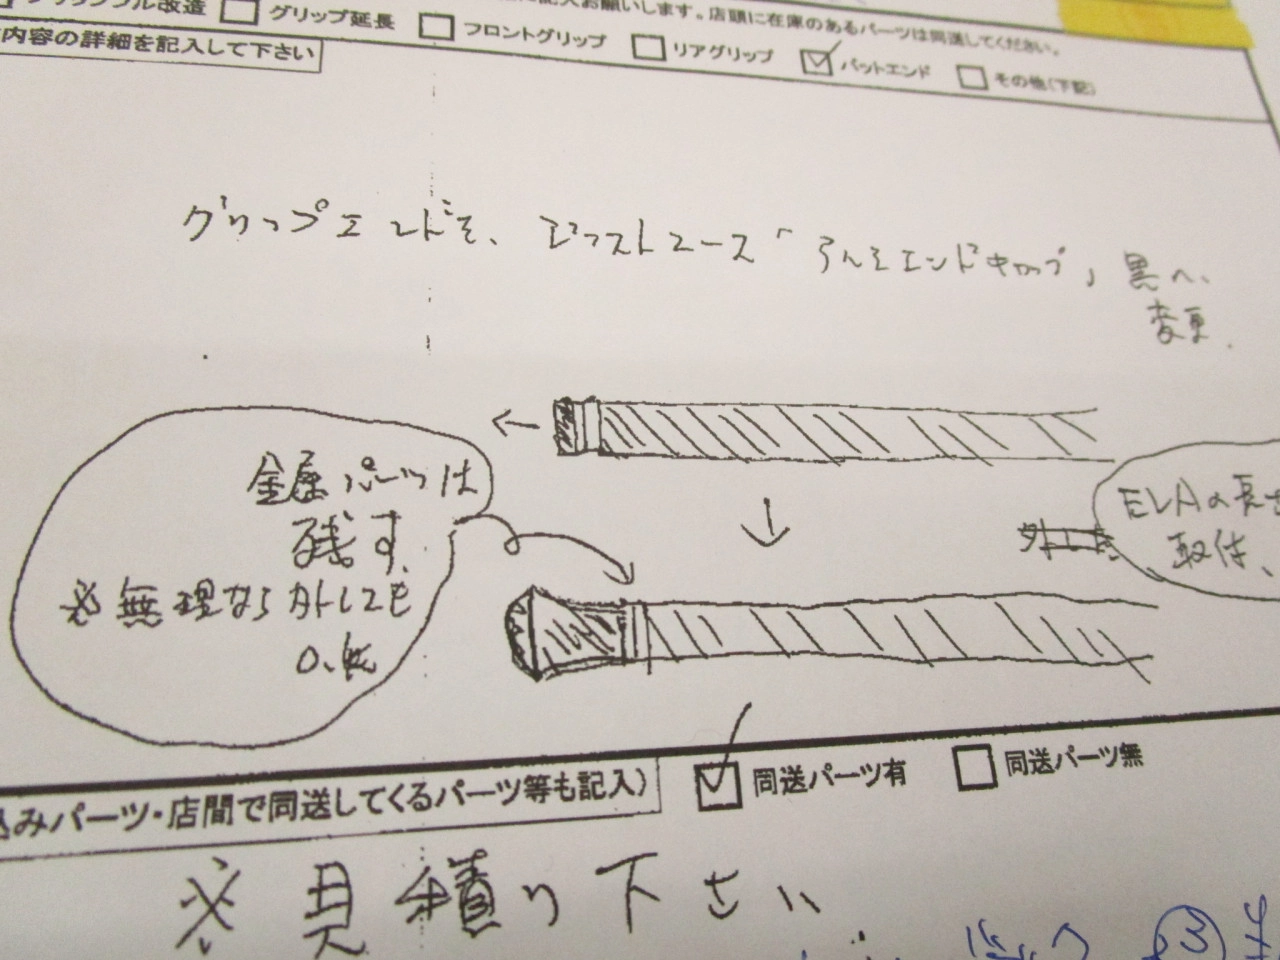 改造 □ グリップ延長 □ フロントグリップ □ リアグリップ ☑ バットエンド □ その他(下記)
記入お願いします。店頭に在庫のあるパーツは同送してください。
内容の詳細を記入して下さい
グリップエンドを、ジャストエース「アルミエンドキャップ」黒へ、
変更.
金属パーツは
残す.
※無理なら外しても
O.K
EVAの長さ
取付、
込みパーツ・店間で同送してくるパーツ等も記入) ☑ 同送パーツ有 □ 同送パーツ無
※見積り下さい